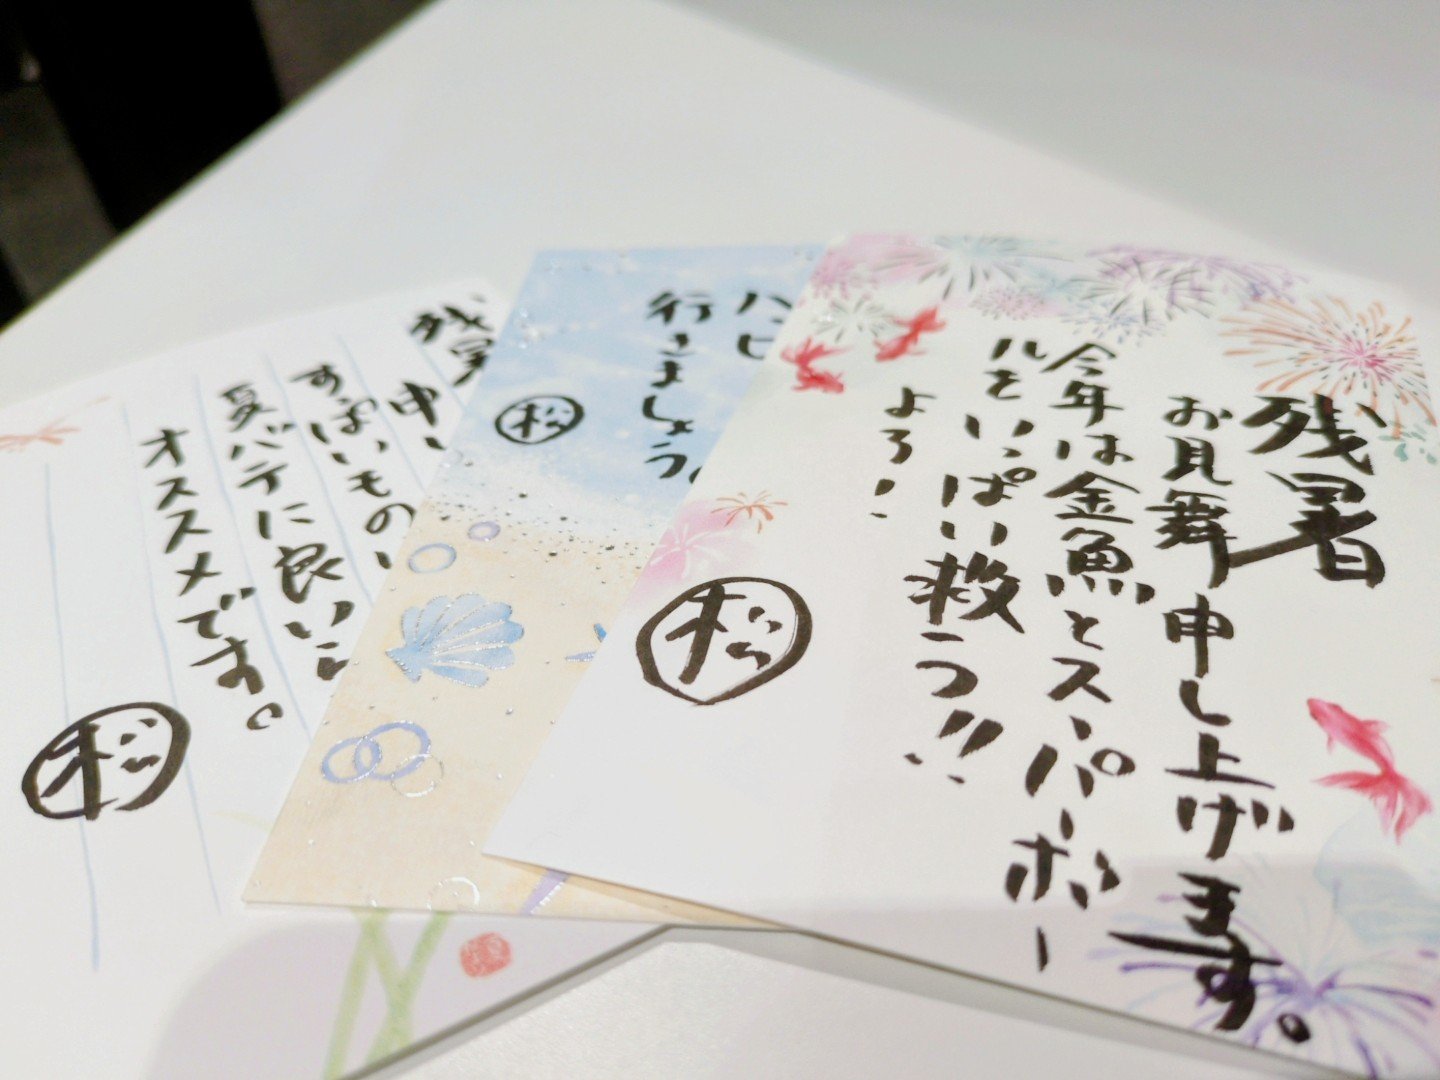 残暑
お見舞申し上げます。
今年は金魚とスーパーボー
ルをいっぱい救う!!
よろ!
松
行きましょう。
松
残暑
申し
すっぱいもの
夏バテに良いら
オススメです。
松